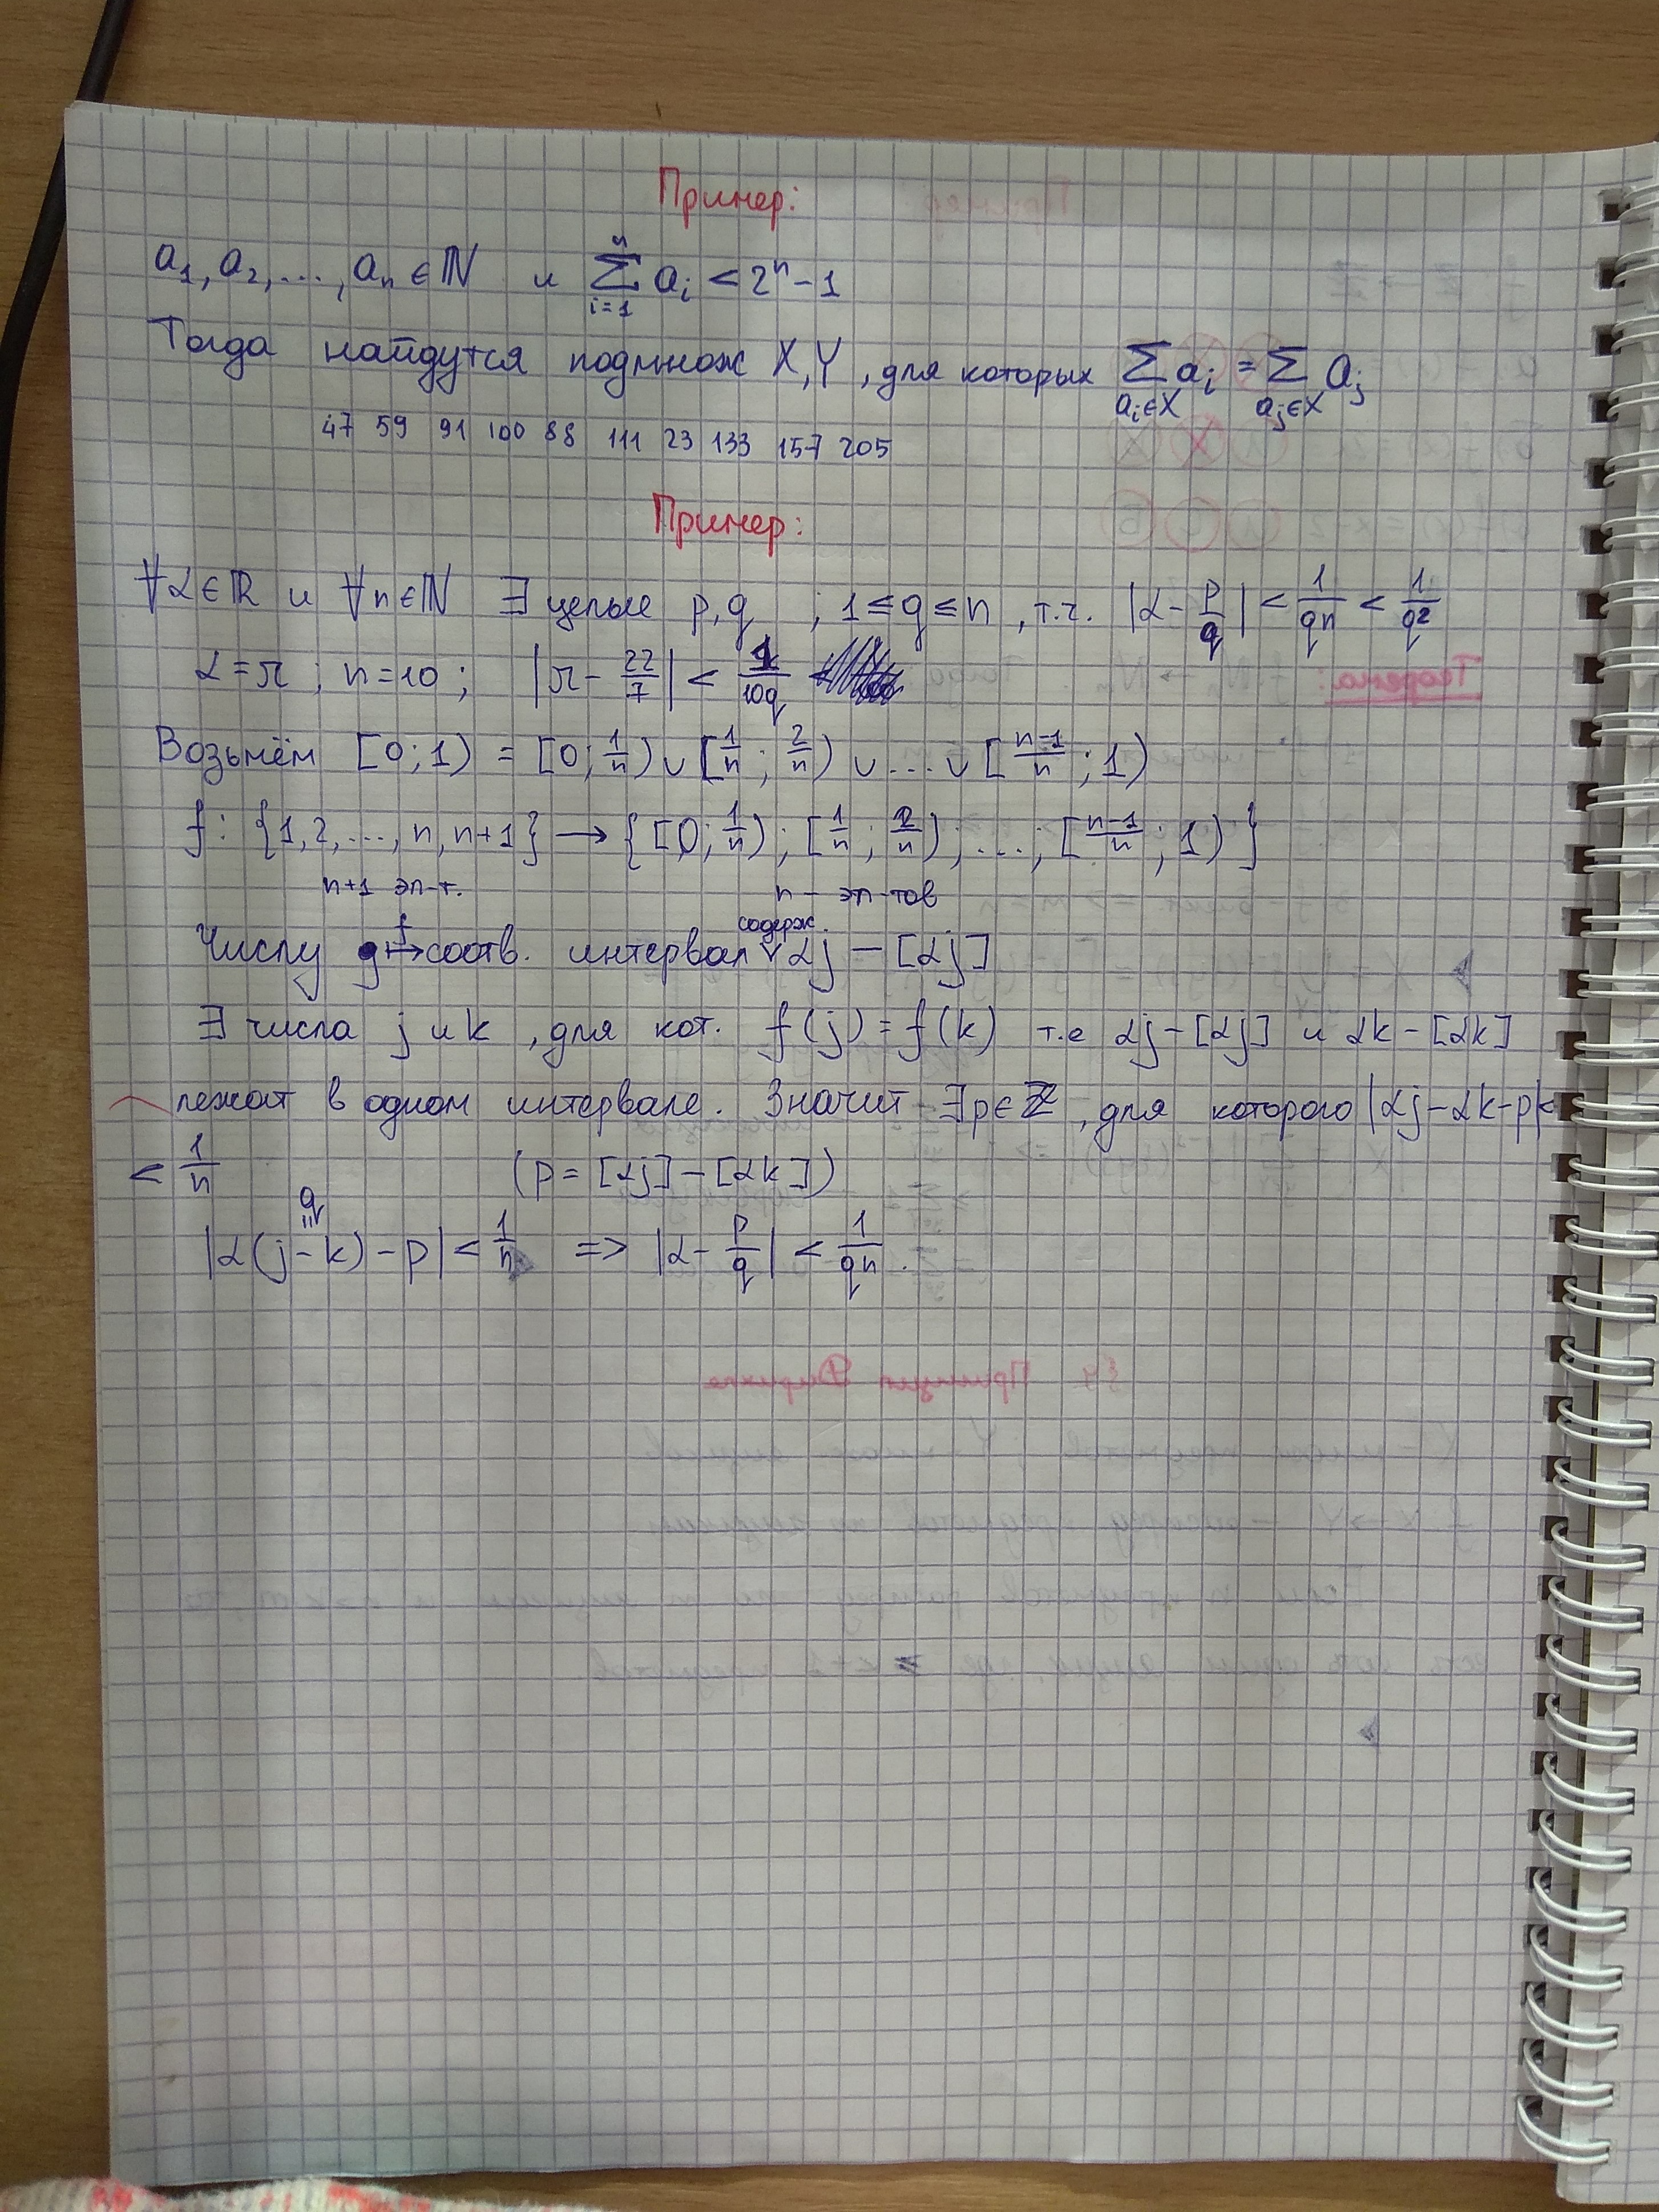 Пример:
a₁, a₂, ..., aₙ ∈ ℕ и ∑ᵢ₌₁ⁿ aᵢ < 2ⁿ - 1
Тогда найдутся подмнож X, Y, для которых ∑_{aᵢ∈X} aᵢ = ∑_{aⱼ∈X} aⱼ
47 59 91 100 88 111 23 133 157 205
Пример:
∀α∈ℝ и ∀n∈ℕ ∃ целые p, q ; 1 ≤ q ≤ n, т.ч. |α - p/q| < 1/qn < 1/q²
α = π ; n = 10 ; |π - 22/7| < 1/10q <
Возьмём [0; 1) = [0; 1/n) ∪ [1/n ; 2/n) ∪ ... ∪ [n-1/n ; 1)
f: {1, 2, ..., n, n+1} → {[0; 1/n) ; [1/n ; 2/n) ; ... ; [n-1/n ; 1)}
n+1 эл-т. n - эл-тов
содерж.
Числу g ↦ᶠ соотв. интервал ∨ αj - [αj]
∃ числа j и k, для кот. f(j) = f(k) т.е αj - [αj] и αk - [αk]
лежат в одном интервале. Значит ∃p∈ℤ, для которого |αj - αk - p| <
< 1/n (p = [αj] - [αk])
q
=
|α(j - k) - p| < 1/n ⇒ |α - p/q| < 1/qn.
Теорема:
§4 Принцип Дирихле